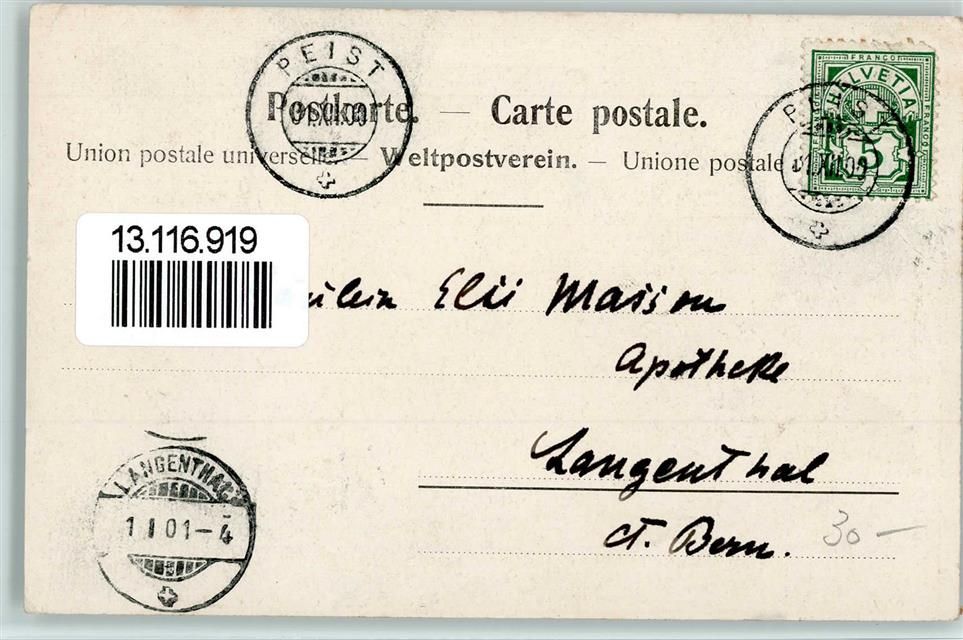 PEIST
Postkarte. — Carte postale.
Union postale universelle — Weltpostverein. — Unione postale
FRANCO
HELVETIA
FRANCO
5
13.116.919
Elsi
Apotheke
Langenthal
ct. Bern.
30 —
LANGENTHAL
1 I 01 – 4